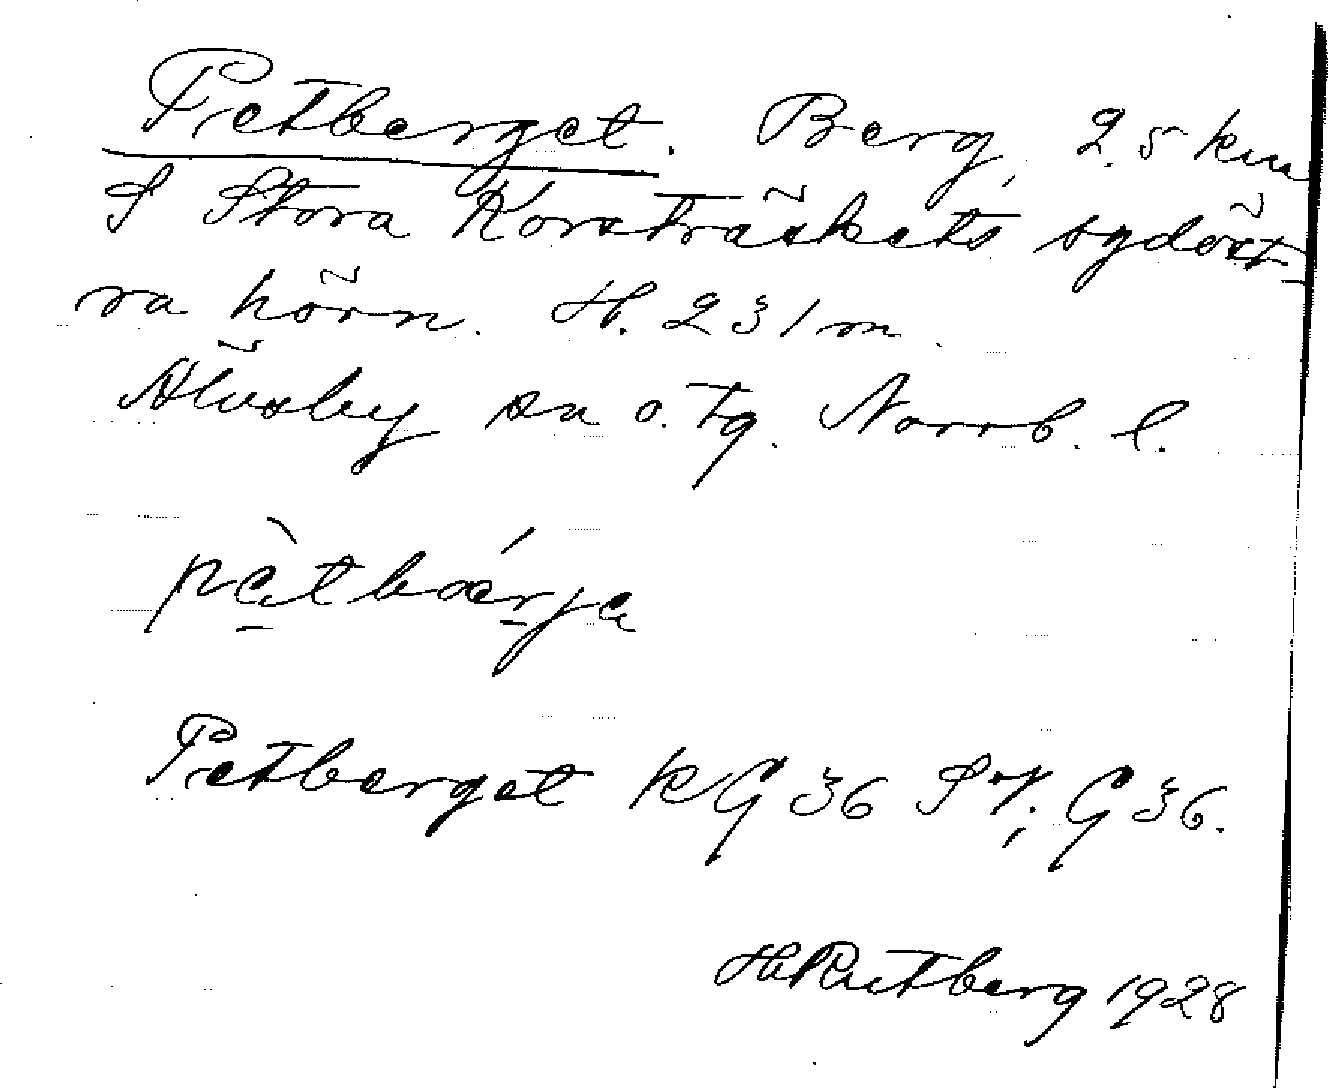 Petberget. Berg, 2.5 km
S Stora Korsträskets sydöst-
ra hörn. H. 231 m.
Älvsby sn o. tg. Norrb. l.
pètbǽrja
Petberget KG 36 SV; G 36.
H Rutberg 1928